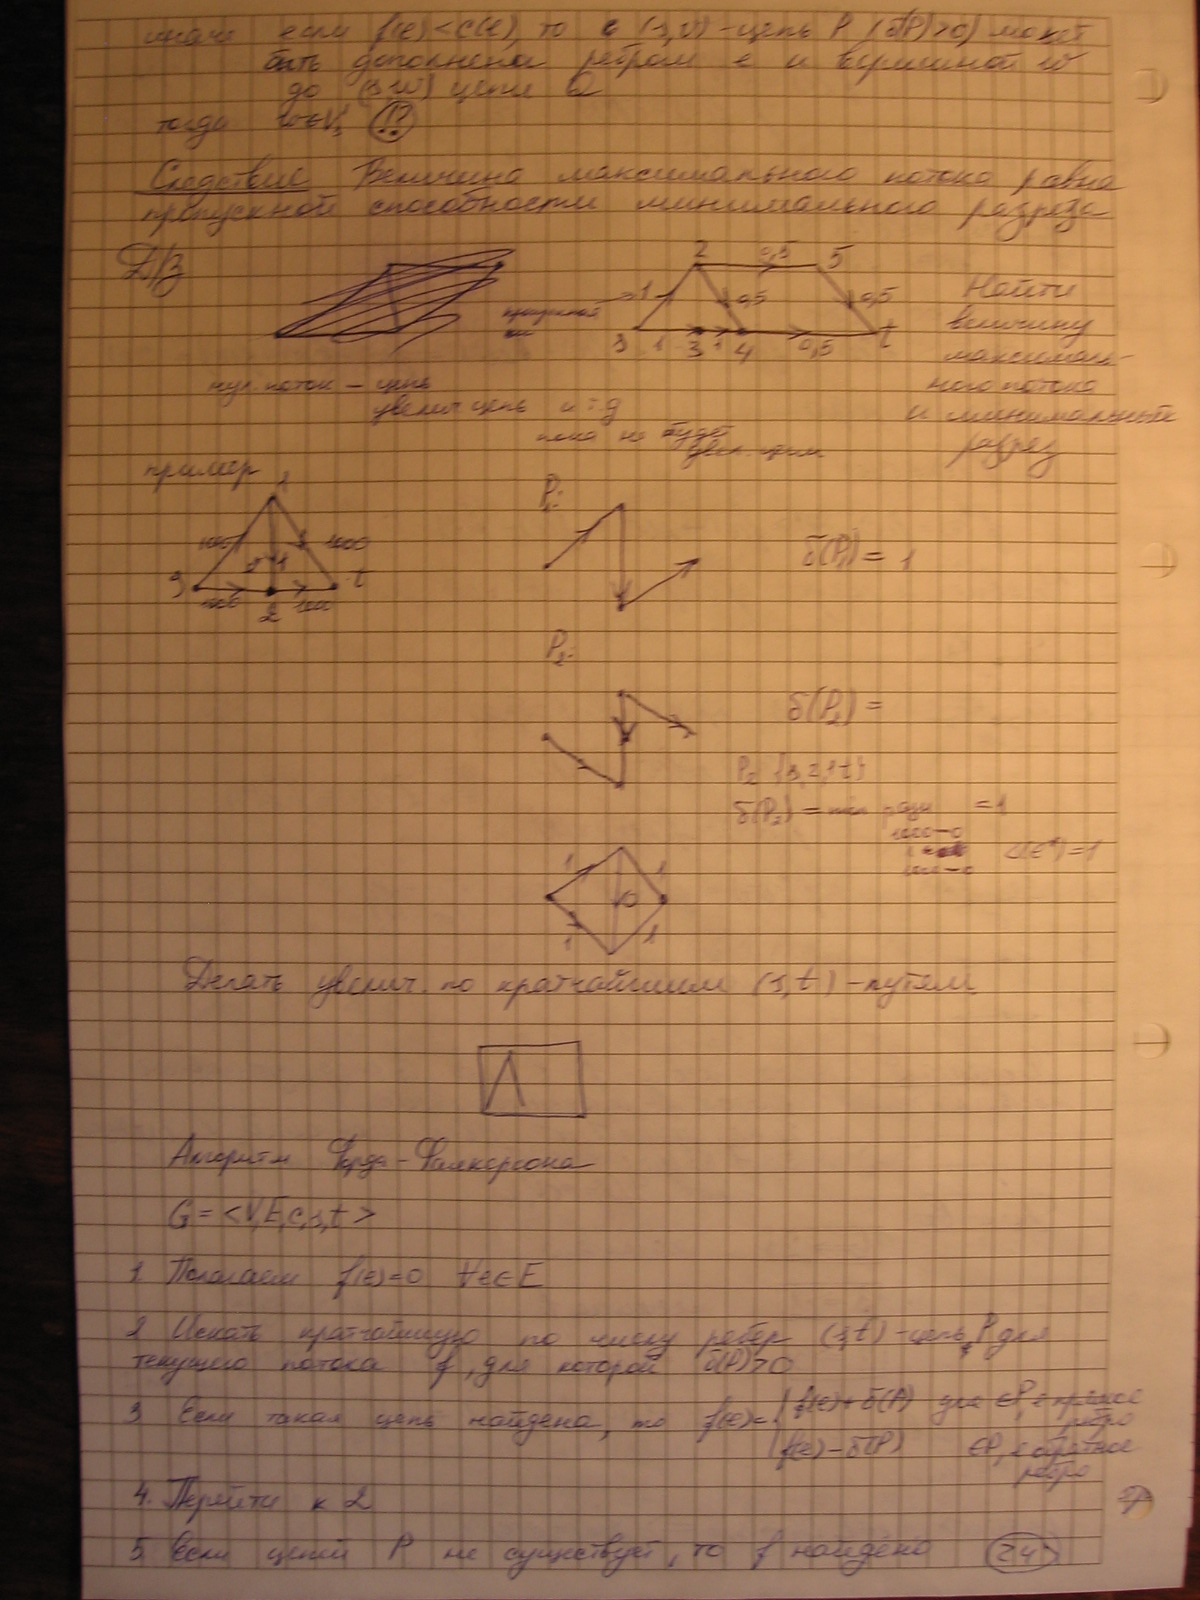 иначе если f(e)<c(e), то с (s,v)-цепь P (δ(P)>0) может
быть дополнена ребром e и вершиной w
до (s-w) цепи Q
тогда w∈Vs !?
Следствие Величина максимального потока равна
пропускной способности минимального разреза
Д/З
2 0,5 5
1 0,5 0,5
s 1 3 1 4 0,5 t
Найти
величину
максималь-
ного потока
и минимальный
разрез
нул. поток – цепь
увелич цепь и т.д
пока не будет
увел. цепи
пример
1
1000 1 1000
s t
1000 2 1000
P1:
δ(P1) = 1
P2:
δ(P2) =
P2 {s, 2, 1 t}
δ(P2) = min =1
1000–0
1
1000–0
c(e*)=1
1 1
0
1 1
Делать увелич. по кратчайшим (s,t)-путям
Алгоритм Форда-Фалкерсона
G = <V,E,c,s,t>
1. Полагаем f(e)=0 ∀e∈E
2 Искать кратчайшую по числу ребер (s,t)-цепь P для
текущего потока f, для которой δ(P)>0
3 Если такая цепь найдена, то f(e)= f(e)+δ(P) для e∈P, e прямое
ребро
f(e)-δ(P) e∈P, e обратное
ребро
4. Перейти к 2
5 Если цепей P не существует, то f найдено
24